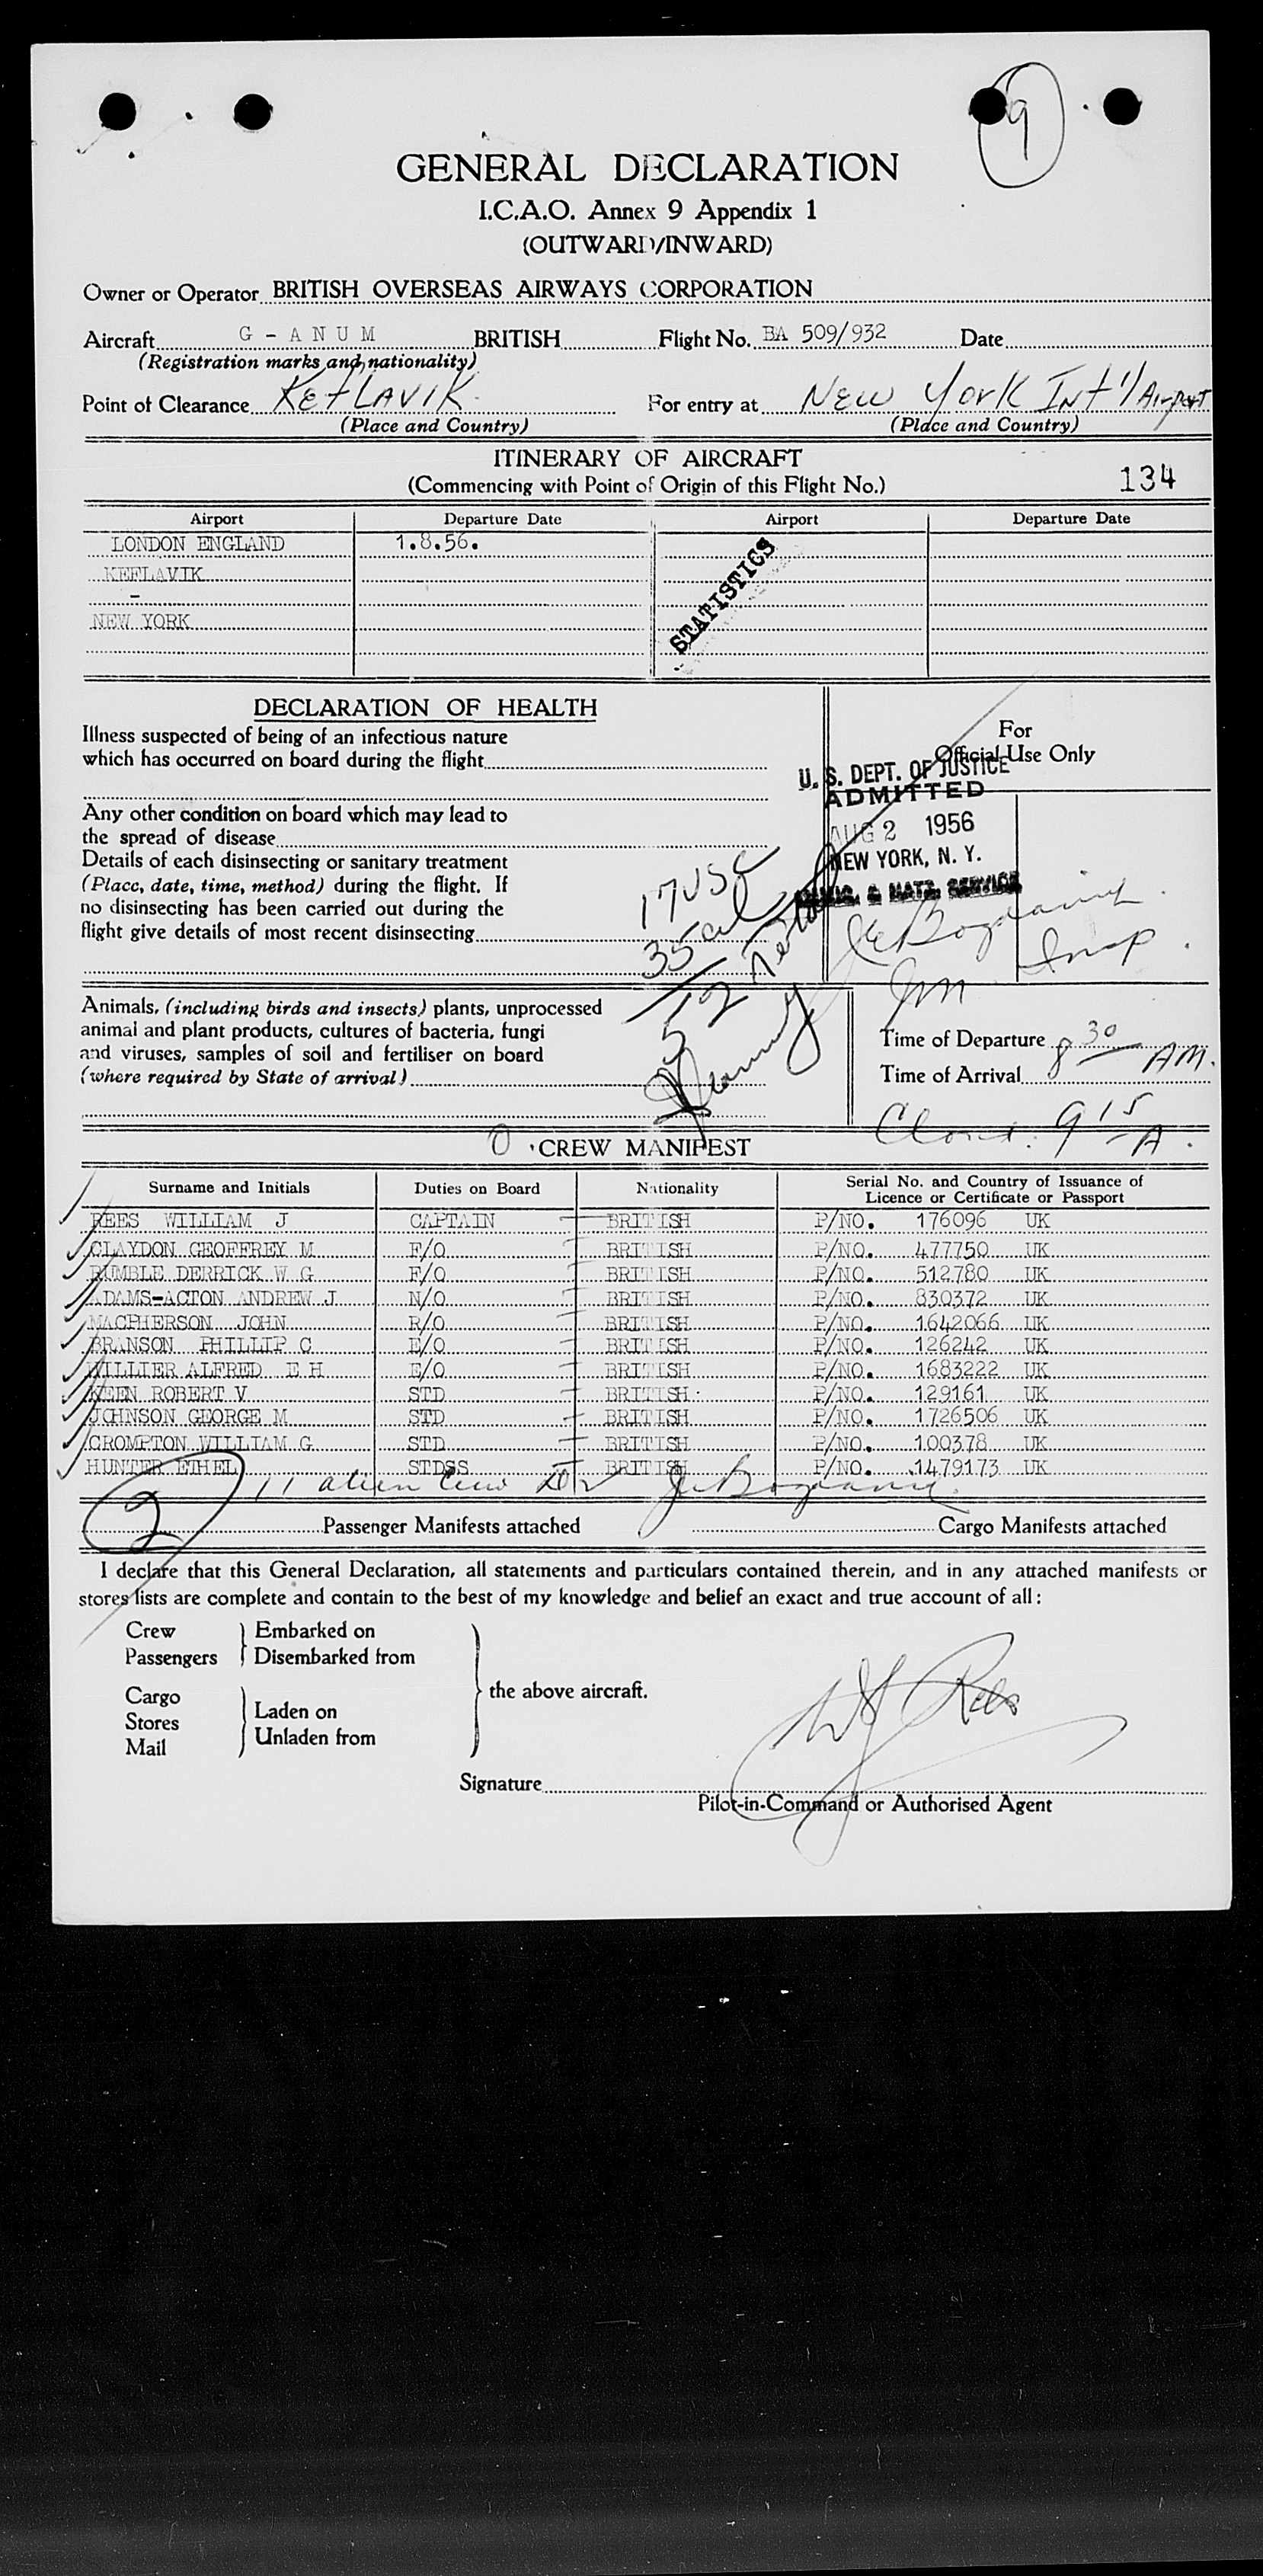 9
GENERAL DECLARATION
I.C.A.O. Annex 9 Appendix 1
(OUTWARD/INWARD)
Owner or Operator BRITISH OVERSEAS AIRWAYS CORPORATION
Aircraft G - A N U M BRITISH Flight No. BA 509/932 Date
(Registration marks and nationality)
Point of Clearance KEFLAVIK For entry at New York Int'l Airport
(Place and Country) (Place and Country)
ITINERARY OF AIRCRAFT
(Commencing with Point of Origin of this Flight No.) 134
Airport Departure Date Airport Departure Date
LONDON ENGLAND 1.8.56.
KEFLAVIK
-
NEW YORK
STATISTICS
DECLARATION OF HEALTH
Illness suspected of being of an infectious nature
which has occurred on board during the flight
Any other condition on board which may lead to
the spread of disease
Details of each disinsecting or sanitary treatment
(Place, date, time, method) during the flight. If
no disinsecting has been carried out during the
flight give details of most recent disinsecting
17 USC
35 al
52 Total
For
Official Use Only
U. S. DEPT. OF JUSTICE
ADMITTED
AUG 2 1956
NEW YORK, N. Y.
IMMIG. & NATZ. SERVICE
Insp.
Imm
Animals, (including birds and insects) plants, unprocessed
animal and plant products, cultures of bacteria, fungi
and viruses, samples of soil and fertiliser on board
(where required by State of arrival)
Time of Departure
Time of Arrival 8 30 AM.
9 15 A.
0 CREW MANIFEST
Surname and Initials Duties on Board Nationality Serial No. and Country of Issuance of
Licence or Certificate or Passport
REES WILLIAM J CAPTAIN BRITISH P/NO. 176096 UK
CLAYDON GEOFFREY M F/O BRITISH P/NO. 477750 UK
RUMBLE DERRICK W G F/O BRITISH P/NO. 512780 UK
ADAMS-ACTON ANDREW J N/O BRITISH P/NO. 830372 UK
MACPHERSON JOHN R/O BRITISH P/NO. 1642066 UK
BRANSON PHILLIP C E/O BRITISH P/NO. 126242 UK
HILLIER ALFRED E H E/O BRITISH P/NO. 1683222 UK
KEEN ROBERT V STD BRITISH P/NO. 129161 UK
JOHNSON GEORGE M STD BRITISH P/NO. 1726506 UK
CROMPTON WILLIAM G STD BRITISH P/NO. 100378 UK
HUNTER ETHEL STDSS BRITISH P/NO. 1479173 UK
11 alien Crew
2 Passenger Manifests attached Cargo Manifests attached
I declare that this General Declaration, all statements and particulars contained therein, and in any attached manifests or
stores lists are complete and contain to the best of my knowledge and belief an exact and true account of all:
Crew Embarked on
Passengers Disembarked from
the above aircraft.
Cargo Laden on
Stores
Unladen from
Mail
WJ Rees
Signature
Pilot-in-Command or Authorised Agent